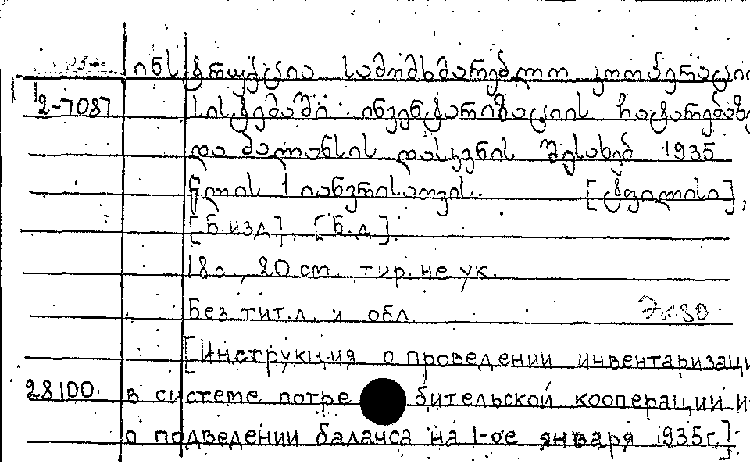 ინსტრუქცია სამომხმარებლო კოოპერაციი
2-7087 სისტემაში ინვენტარიზაციის ჩატარებაზე
და ბალანსის დასკვნის შესახებ 1935
წლის 1 იანვრისათვის. [ტფილისი],
[Б.изд], [Б.д].
18с, 20 cm. тир. не ук.
Без тит.л. и обл.
[Инструкция о проведении инвентаризаци
28100 в системе потребительской кооперации и
о подведении баланса на 1-ое января 1935г.]